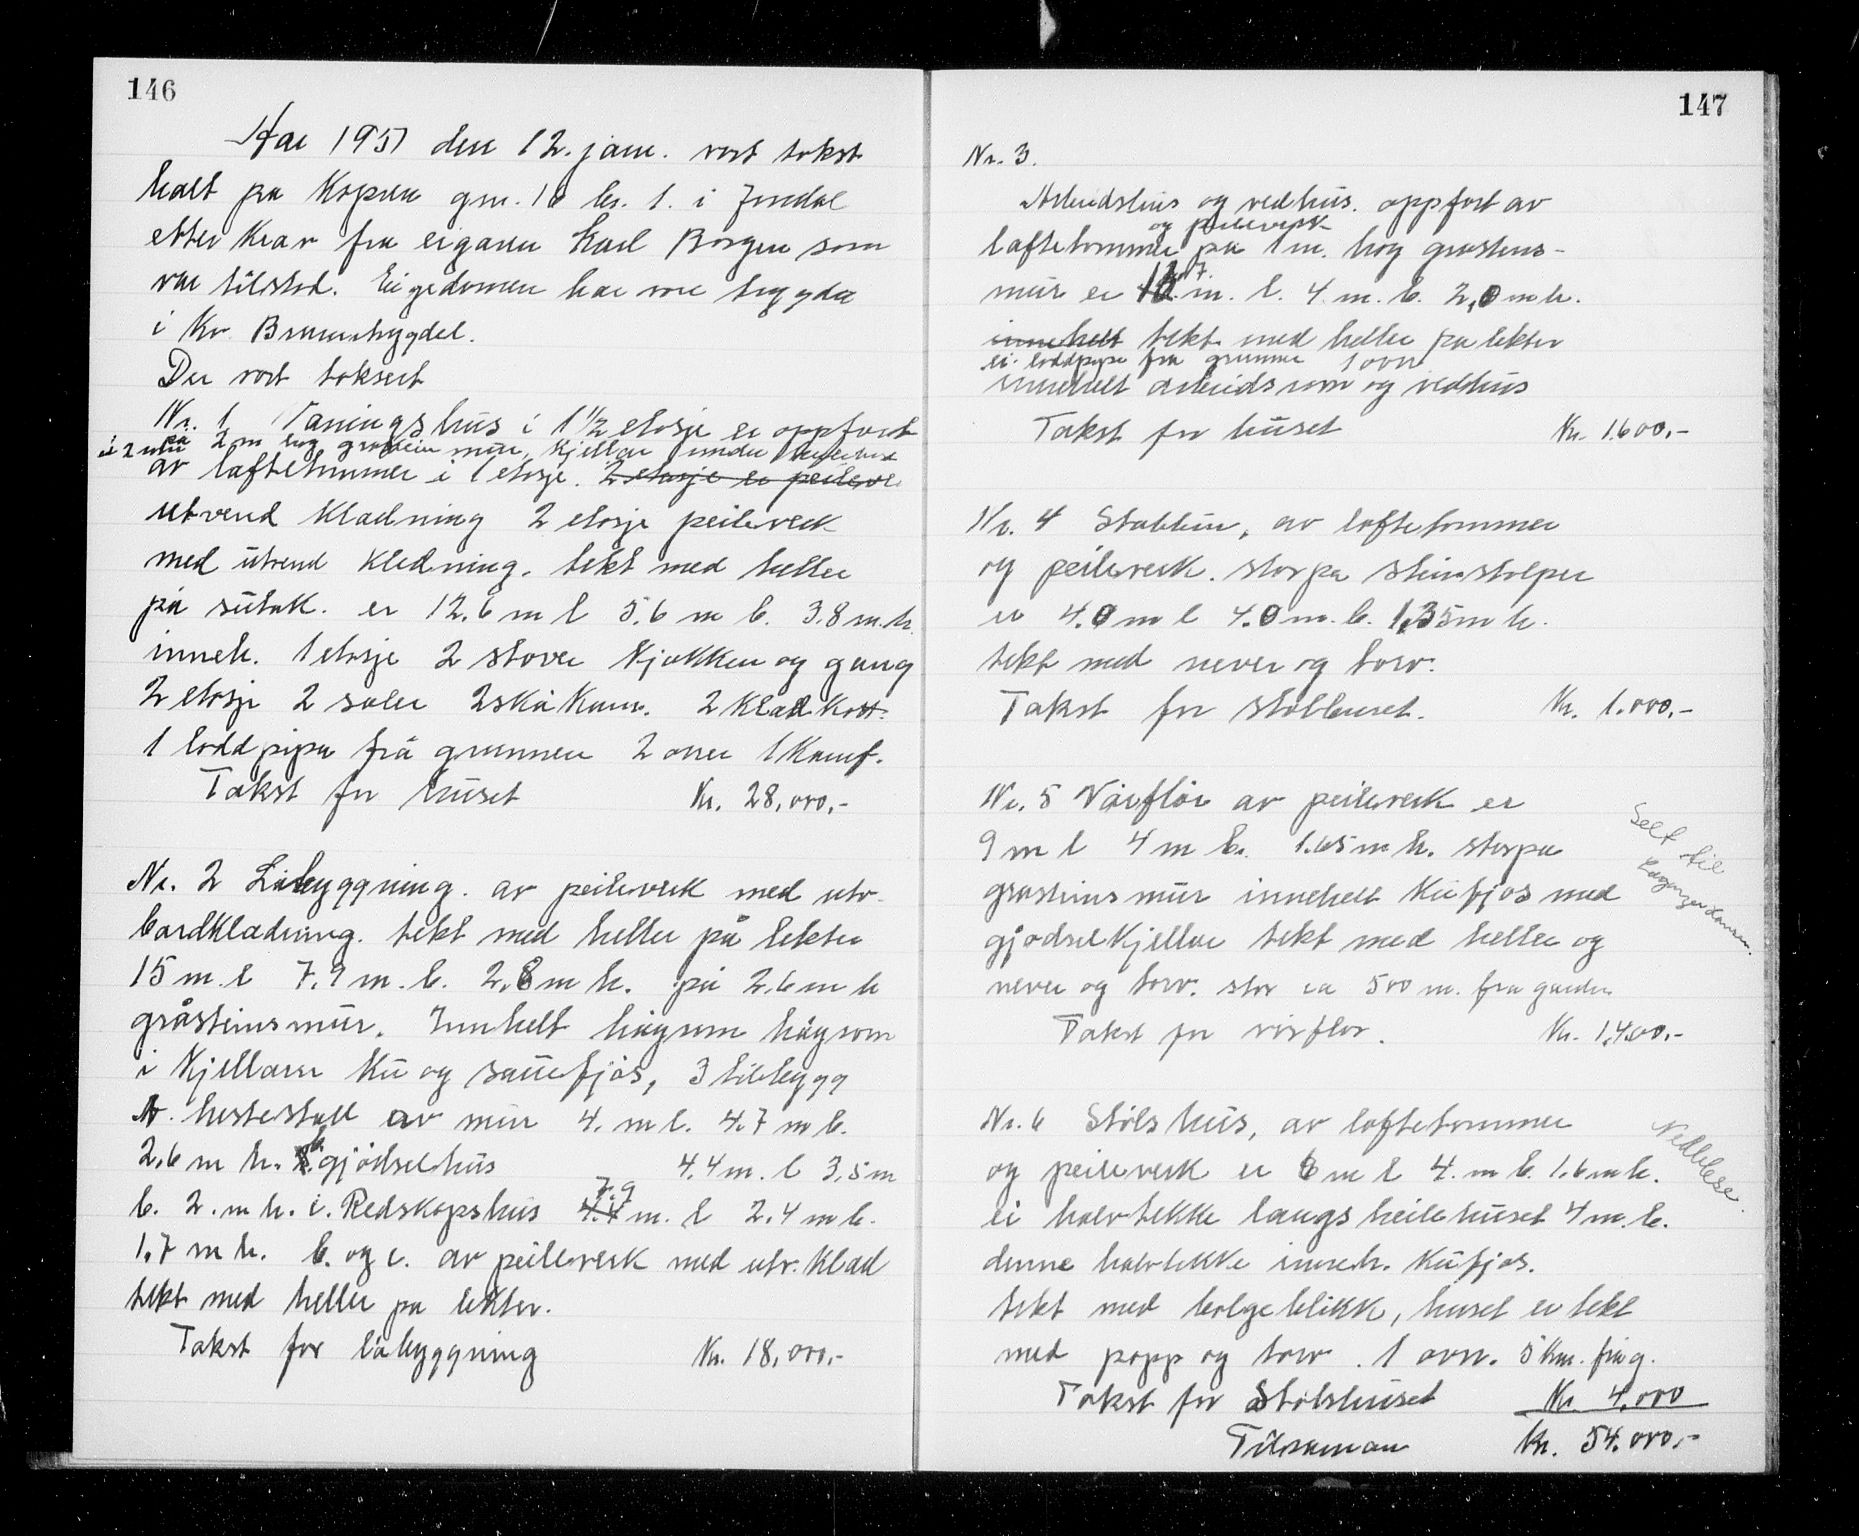 146
Aar 1951 den 12. janu. vart takst
halt på Kopren gnr. 10 br. 1. i Jondal
etter krav fra eigaren Karl Borgen som
var tilsted. Eigedomen har vore trygda
i Kr Brannbygdel.
Der vart taksert
Nr. 1 Vaningshus i 1 1/2 etasje er oppfort
på 2 m høg gråstein mur, kjellar under
av laftetommer i 1 etasje. 2 etasje er peilever
utvend kladning 2 etasje peileverk
med utvend kledning. tekt med heller
på sutak. er 12.6 m l 5.6 m b. 3.8 m. h.
inneh. 1 etasje 2 stover kjøkken og gang
2 etasje 2 saler 2 skåkam. 2 kladkott.
1 loddpipa frå grunnen 2 over 1 kamf.
Takst for huset Kr. 28,000,-
Nr. 2 Låbyggning. av peileverk med utv.
bordkladning. tekt med heller på lekter
15 m. l 7.9 m. b. 2.8 m h. på 2.6 m h
gråsteinsmur. Innhelt høyrom høyrom
i kjellaren ku og sauefjøs, 3 tilbygg
hestestall av mur 4. m l. 4.7 m b.
2.6 m h. b gjødselhus 4.4 m. l 3.5 m
7.9
b. 2. m h. c. Redskapshus 4.4 m. l 2.4 m b.
1.7 m h. b. og c. av peileverk med utv. klad
tekt med heller pa lekter.
Takst for låbyggning Kr. 18,000,-
147
Nr. 3.
Arbeidshus og vedhus. oppfort av
og peileverk
laftetommer pa 1 m. høg grastens-
mur er 12.7. m. l. 4. m. b. 2,0 m h.
innehelt tekt med heller pa lekter
ei loddpipe fra grunnen 1 ovn
innehelt arbeidsrom og vedhus
Takst for huset Kr. 1.600,-
Nr. 4 Stabbur, av laftetommer
og peileverk. stor pa steinstolper
er 4.0 m l 4.0 m. b. 1,35 m h.
tekt med never og torv.
Takst for stabburet. Kr. 1.000,-
Nr. 5 Vårflor av peileverk er
9 m l 4 m b. 1.65 m h. stor pa
grasteinsmur innehelt kufjøs med
gjødselkjellar tekt med heller og
never og torv. stor ca 500 m. fra garden
Takst for vårflor. Kr. 1,400,-
Selt til
Nr. 6 Stølshus, av laftetommer
og peileverk er 6 m l 4. m b. 1.6 m h.
ei halvtekke langs heile huset 4 m. b.
denne halvtekke inneh. kufjøs.
tekt med bølgeblikk, huset er tekt
med papp og torv. 1 ovn. 5 km. frå g.
Nedblese.
Takst for Stølshuset Kr 4.000
Tilsaman Kr. 54.000,-